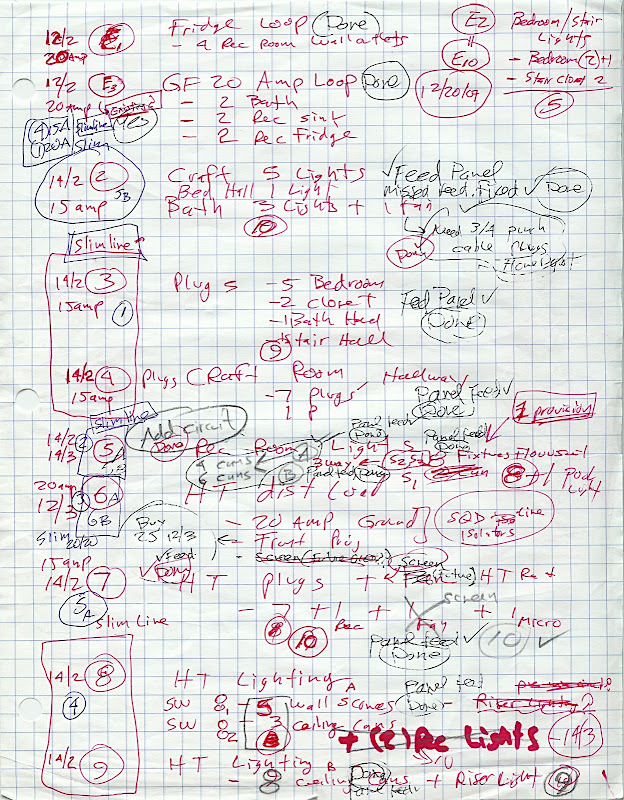 12/2 E1 Fridge Loop (Done) E2 Bedroom/Stair
20 Amp - 4 Rec Room Wall outlets = Lights
E10 - Bedroom (2)+1
12/20/07 - Stair Closet 2
5
12/2 E3 GF 20 Amp Loop Done
20 amp Existing - 2 Bath
- 2 Rec sink
- 2 Rec Fridge
4 15A Slimline
1 20A Slim
14/2 2 Craft 5 Lights ✓ Feed Panel
15 amp 5B Bed Hall 1 Light missed feed. Fixed ✓ Done
Bath 3 Lights + 1 Fan
10
Need 3/4 push
Done cable plugs
Home Depot
Slimline
14/2 3 Plugs - 5 Bedroom
15 amp 1 - 2 Closet Fed Panel ✓
- 1 Bath Hall Done
- 1 Stair Hall
9
14/2 4 Plugs Craft Room
15 amp - 7 Plugs Hallway
1 P Panel Feed ✓
Done
Slimline Add Circuit 1 provision
14/2 2 5 Done Rec Room Lights Panel feed Done
14/3 4 cans A 3 way S2, S2 Fixtures
6 cans B Panel feed Done S1 8 + 1 Pod
Light
20 amp 6A HT dist Load
12/3 3 6B - 20 Amp Ground SQD Line
Isolators
Slim 20/20 Buy 25 12/3 - Front Proj
15 amp ✓ Feed Done Screen
14/2 7 HT plugs + HT Rec
5A Slimline - 7 + 1 Rec + 1 Fay + 1 Micro
Screen
8 10 Panel feed ✓ Done 10 ✓
14/2 8 HT Lighting A Panel feed
4 SW 81 - 5 Wall Scones Done - Riser Light
SW 82 - 3 Ceiling Cans
8 + (2) Rec Lights - 14/3
14/2 9 HT Lighting B Done
- 8 Ceiling Cans + Riser Light 10
Panel feed